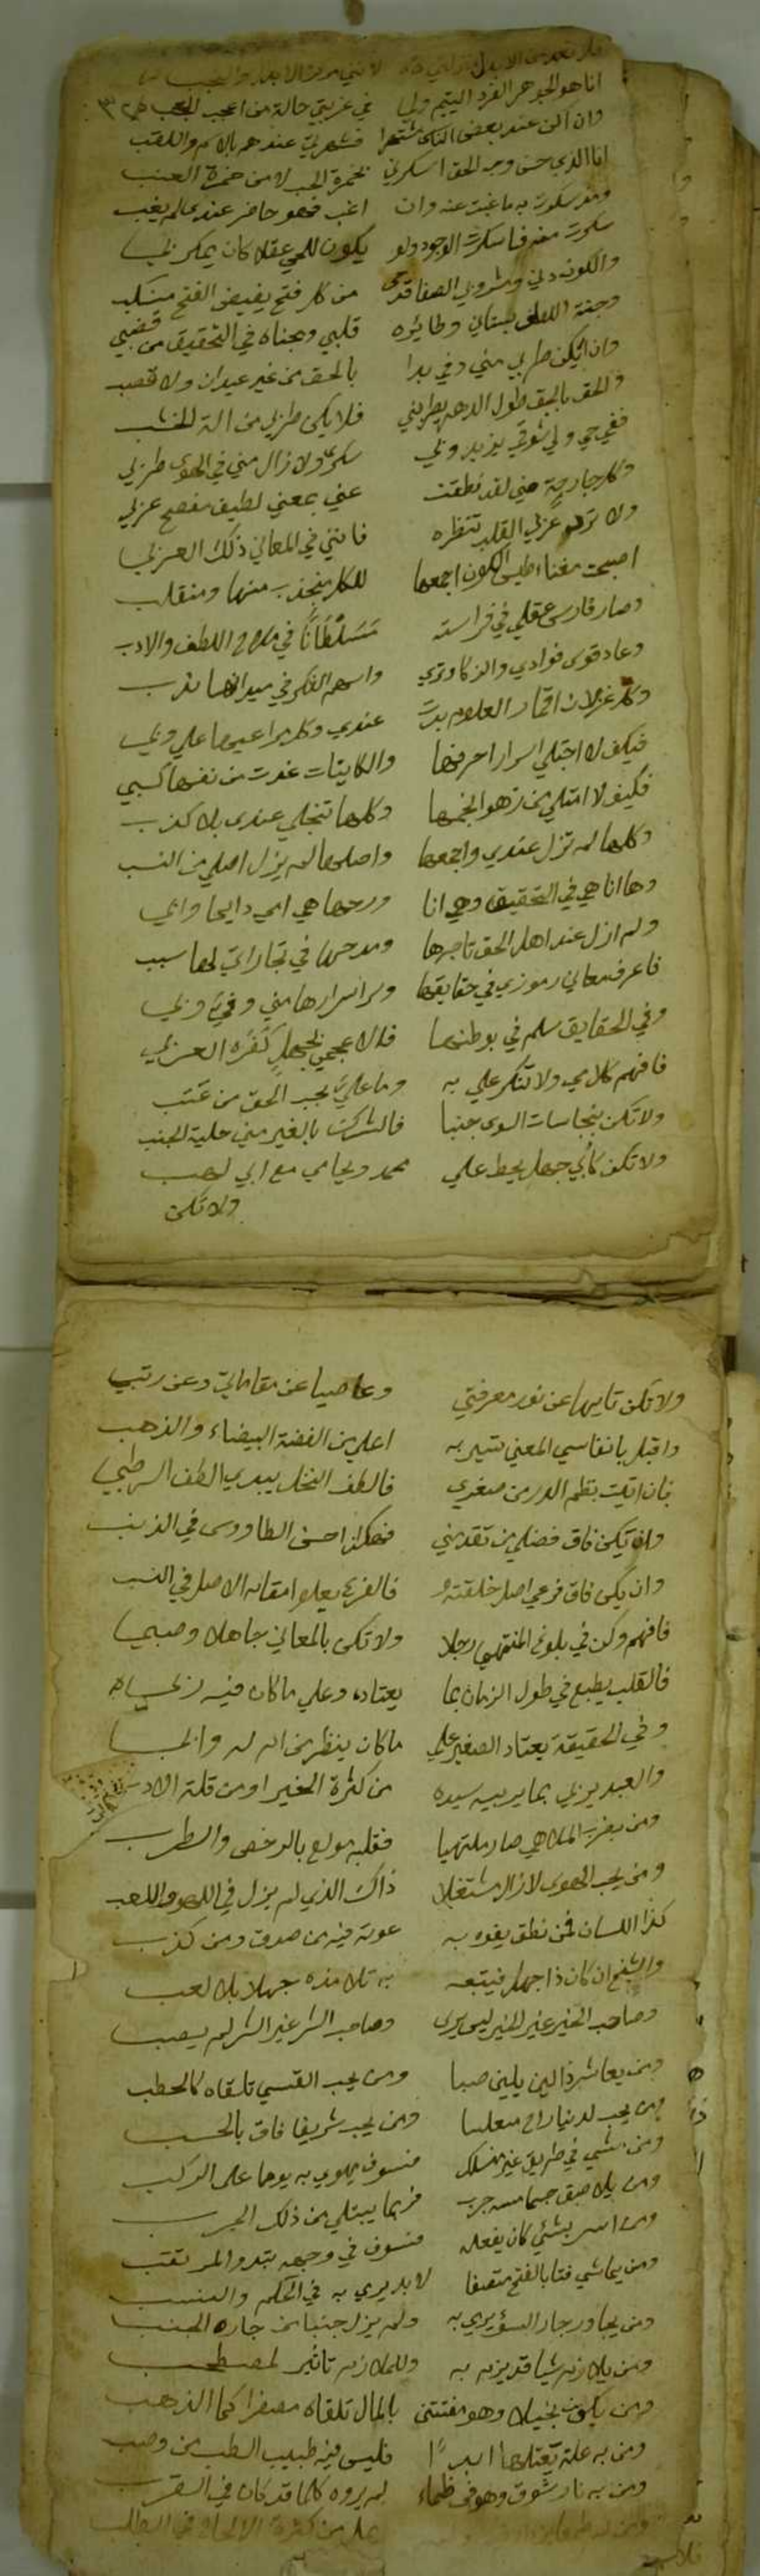 انا هو الجوهر الفرد اليتيم ولي في غربتي حالة من اعجب العجب
وان اكن عند بعض الناس مشتهرا فشهرتي عندهم بالاسم واللقب
انا الذي حسن وجه الحق اسكرني بخمرة الحب لا من خمرة العنب
وقد سكرت به ما غبت عنه وان اغب فهو حاضر عندي لم يغب
سكرت منه فاسكرت الوجود ولو يكون للحي عقلا كان يمكر بي
والكون دني ومشروبي الصفا قدحي من كل فتح بفيض الفتح منسكب
وجنة بستاني وطائره قلبي ومجناه في التحقيق من قضبي
وان يكن طربي مني وفي بدا بالحق من غير عيدان ولا قصب
والحق بالحق طول الدهر يطربني فلا يكن طربي من الة الخشب
ففي حي ولي شوقي يزيد وبي سكري ولا زال مني في الهوى طربي
وكل جارحة مني لقد نطقت عني بمعني لطيف مفصح عربي
ولا ترم عزلي القلب تنظره فانني في المعاني ذلك العربي
اصبحت مغناطيس الكون اجمعها للكل منجذب منها ومنقلب
وصار فارس عقلي في فراسته متسلطانا في اللطف والادب
وعاد قوس فوادي والذكا وتري واسهم الفكر في ميدانها
وكل غزلان اقمار العلوم بدت عندي وكل مراعيها علي وبي
فكيف لا اجتلي اسرار احرفها والكاينات غدت من نفسها كسبي
فكيف لا امتلي من زهو انجمها وكلها تنجلي عندي بلا كذب
وكلها لم تزل عندي واجمعها واصلها لم يزل اصلي من النسب
وها انا هي في التحقيق وهي انا وروحها هي امي دايما وابي
ولم ازل عند اهل الحق تاجرها ومدحها في تجاراتي لها سبب
فاعرف معاني رموزي في حقايقها وسر اسرارها مني وفي وبي
وفي الحقايق سلم في بوطنها فالاعجمي بجهل كفره العربي
فافهم كلامي ولا تنكر علي به وما علي بحب الحق من عتب
ولا تكن بنجاسات السوى جنبا فالشرك بالغير مني حلية الجنب
ولا تكن كأبي جهل يحط على محمد ويحامي مع ابي لهب
ولا تكن
ولا تكن تايها عن نور معرفتي وعاصيا عن مقاماتي وعن رتبي
واقبل بانفاسي المعني تشير به اعلى من الفضة البيضاء والذهب
فان اتيت بنظم الدر من صغري فالطف النخل يبدي الطف الرطب
وان يكن فاق فضلي من تقدمني فهكذا احسن الطاووس في الذنب
وان يكن فاق فرعي اصل خلقته فالفرع يعلو مقام الاصل في النسب
فافهم وكن في بلوغ المنتهى رجلا ولا تكن بالمعاني جاهلا وصبي
فالقلب يطبع في طول الزمان بما يعتاده وعلي ما كان فيه ربي
وفي الحقيقة يعتاد الصغير على ما كان ينظر من ام له واب
والعبد يربي بما يربيه سيده من كثرة الخير او من قلة الادب
ومن يعرف الملاهي صار ملتهيا فقلبه مولع بالرخص والطرب
ومن يحب الهوى لا زال مشتغلا ذاك الذي لم يزل في اللهو واللعب
كذا اللسان فمن نطق يفوه به عوده فيه من صدق ومن كذب
والشيخ ان كان ذا جهل فيتبعه به تلامذه جهلا بلا لعب
وصاحب الخير غير الخير ليس يرى وصاحب الشر غير الشر لم يصب
ومن يعاشر ذا لين يلين صبا ومن يحب القسي تلقاه كالحطب
ومن يحب لدنيا راح ومن يحب شريفا فاق بالحسب
ومن مشي في طريق غير منسلك فسوف يهوي به يوما على الركب
ومن يلاصق جسما مسه جرب فربما يبتلي من ذلك الجرب
ومن اسر بشئي كان يفعله فسوف في وجهه يبدو لمرتقب
ومن يماشي فتا بالفتح متصفا لا بد يري به في الحكم والنسب
ومن يجاور جار السؤ يري به ولم يزل جنبا من جاره الجنب
ومن يلازم شيا قد يزم به وللملازم تاثير لمصطحب
ومن يكون بخيلا وهو مفتتن بالمال تلقاه مصفرا كما الذهب
ومن به علة يعتلها ابدا فليس فيه طبيب الطب من وصب
ومن به نار شوق وهو في ظماء لم يروه كلما قد كان في القرب
من كثرة الالحاح في الطلب